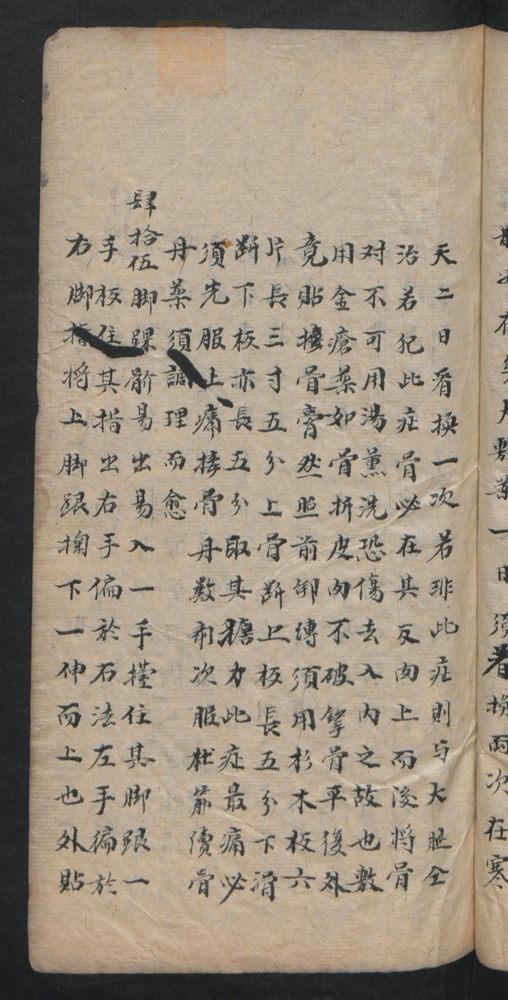 敷藥一日須看換兩次在寒
天二日看換一次若非此症則与大腿仝
治若犯此症骨必在其皮肉上而後將骨
对不可用湯薰洗恐傷去入內之故也敷
用金瘡藥如骨折皮肉不破拏骨平後外
竟貼接骨膏然照前绑縛須用杉木板六
片長三寸五分上骨斷上板長五分下滑
斷下板亦長五分取其擔力此症最痛必
須先服止痛接骨丹数劑次服壯筋續骨
丹藥須調理而愈
肆拾伍脚踝骱易出易入一手擡住其脚跟一
手板住其指出右手偏於右法左手偏於
右脚指將上脚跟掬下一伸而上也外貼